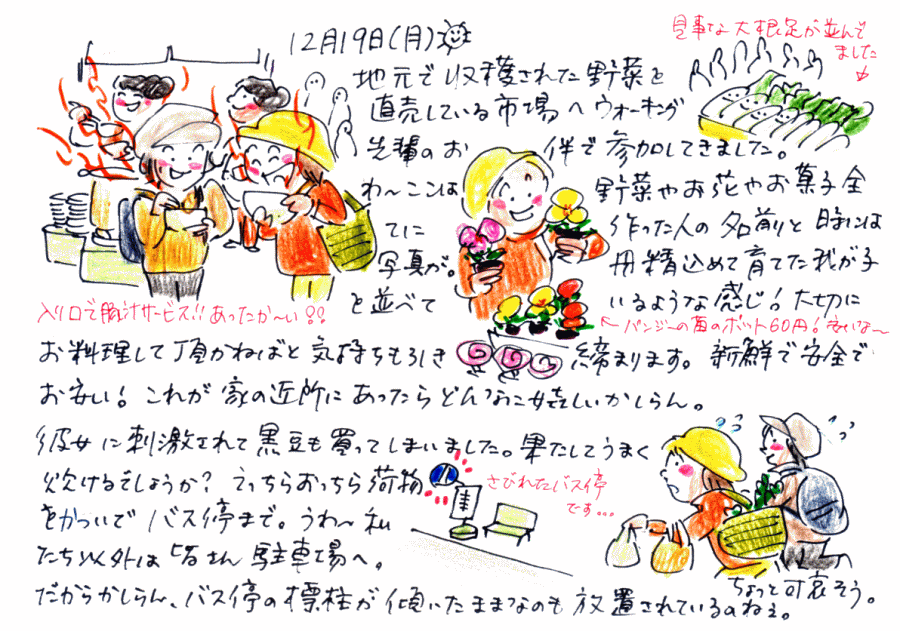 12月19日(月)
見事な大根足が並んで
ました
地元で収穫された野菜を
直売している市場へウォーキング
先輩のお伴で参加してきました。
わ〜ここは野菜やお花やお菓子全
てに作った人の名前と時には
写真が。丹精込めて育てた我が子
を並べているような感じ!大切に
入り口で豚汁サービス!!あったか〜い!!
←パンジーの苗のポット60円!きれいな〜
お料理して頂かねばと気持ちもろしき締まります。新鮮で安全で
お安い!これが家の近所にあったらどんなに嬉しいかしらん。
彼女に刺激されて黒豆も買ってしまいました。果たしてうまく
炊けるでしょうか?えっちらおっちら荷物
をかついでバス停まで。うわ〜私
たち以外は皆さん駐車場へ。
さびれたバス停
です...
だからかしらん、バス停の標柱が傾いたままなのも放置されているのねぇ。
ちょっと可哀そう。